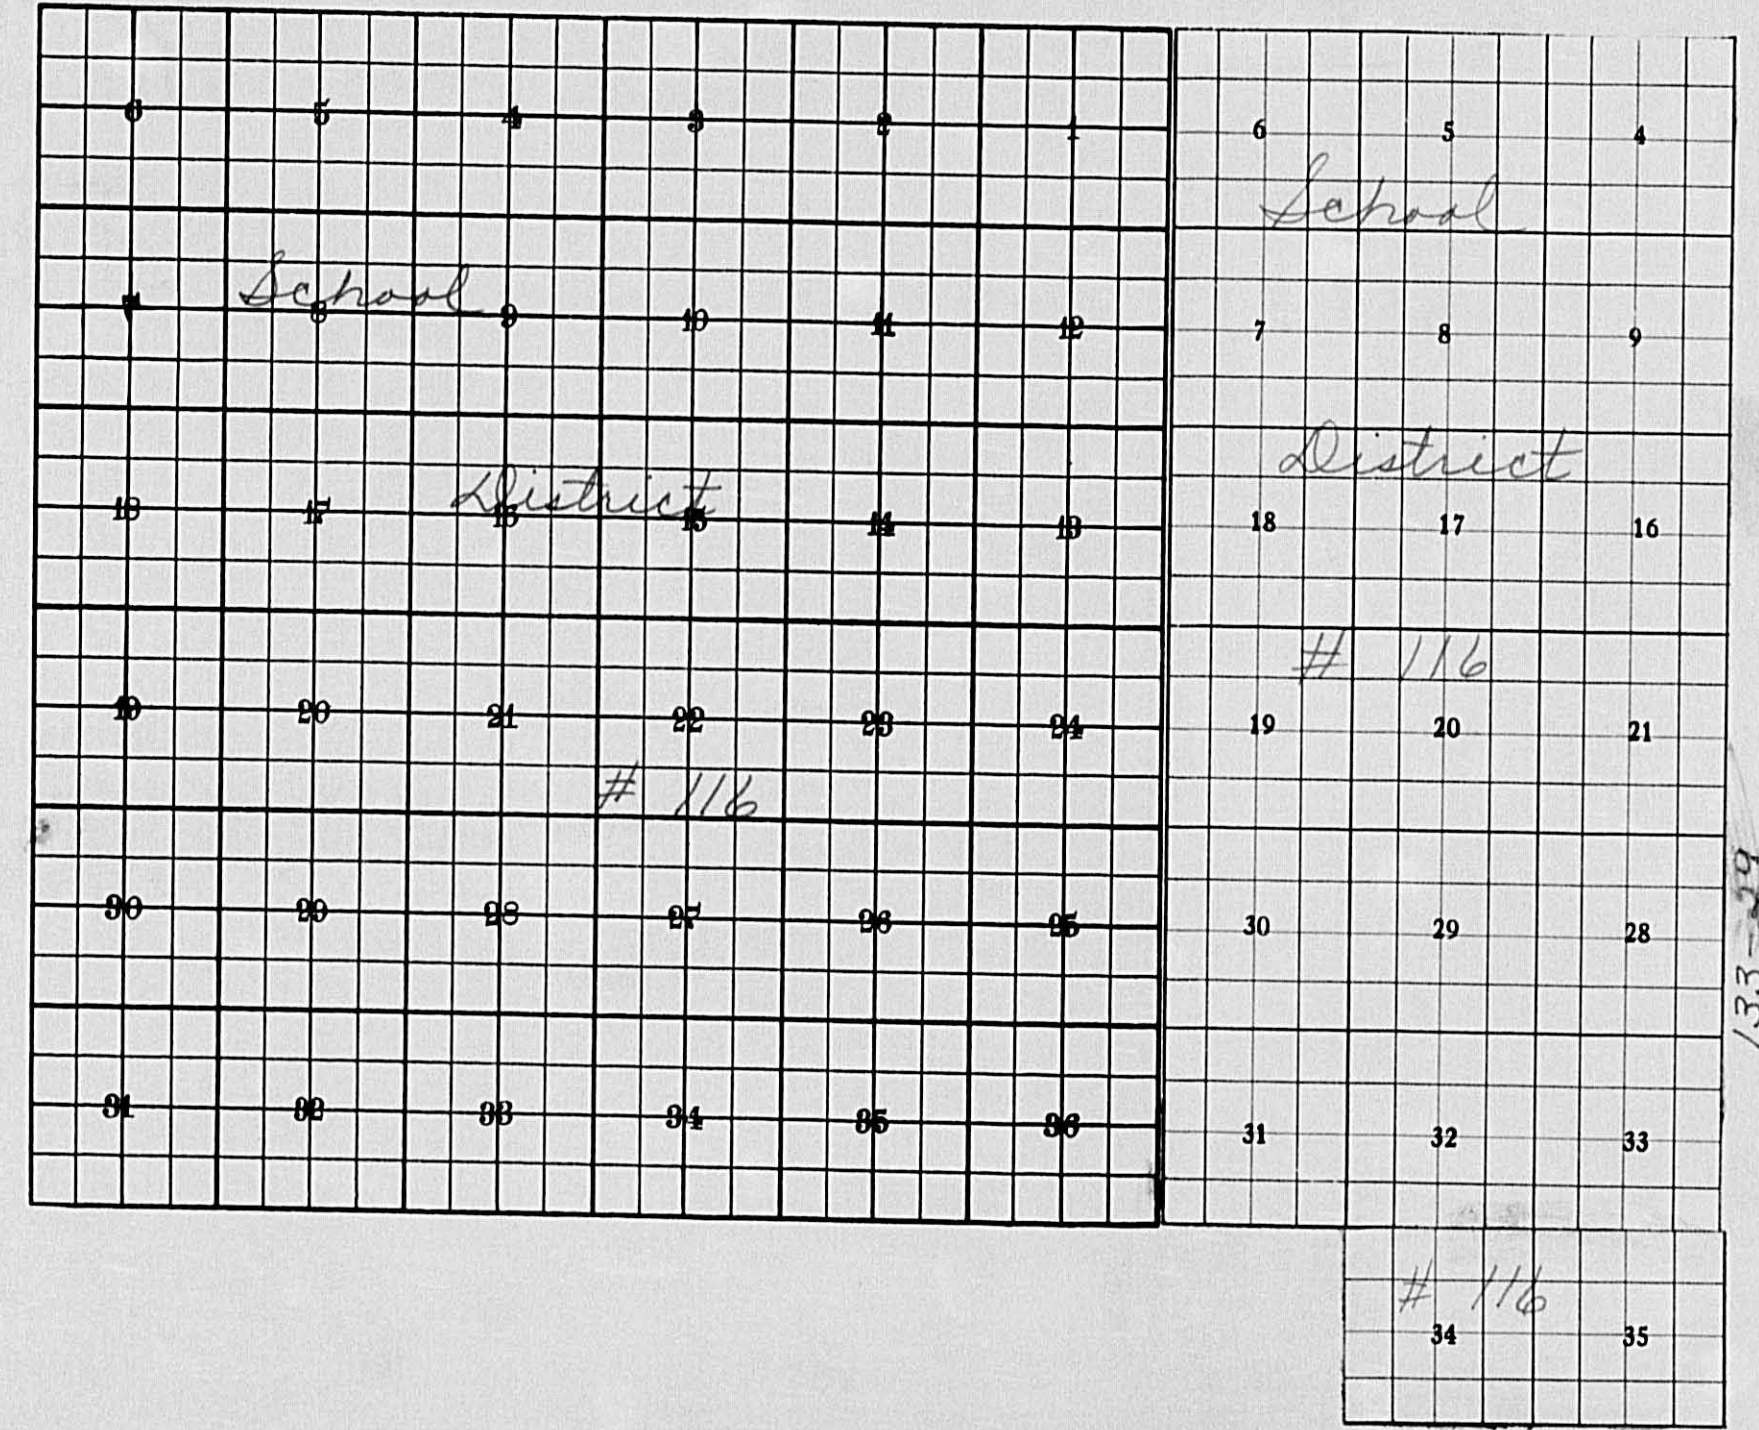 6 5 4 3 2 1
7 8 9 10 11 12
School
18 17 16 15 14 13
District
19 20 21 22 23 24
# 116
30 29 28 27 26 25
31 32 33 34 35 36
6 5 4
School
7 8 9
District
18 17 16
# 116
19 20 21
30 29 28
31 32 33
# 116
34 35